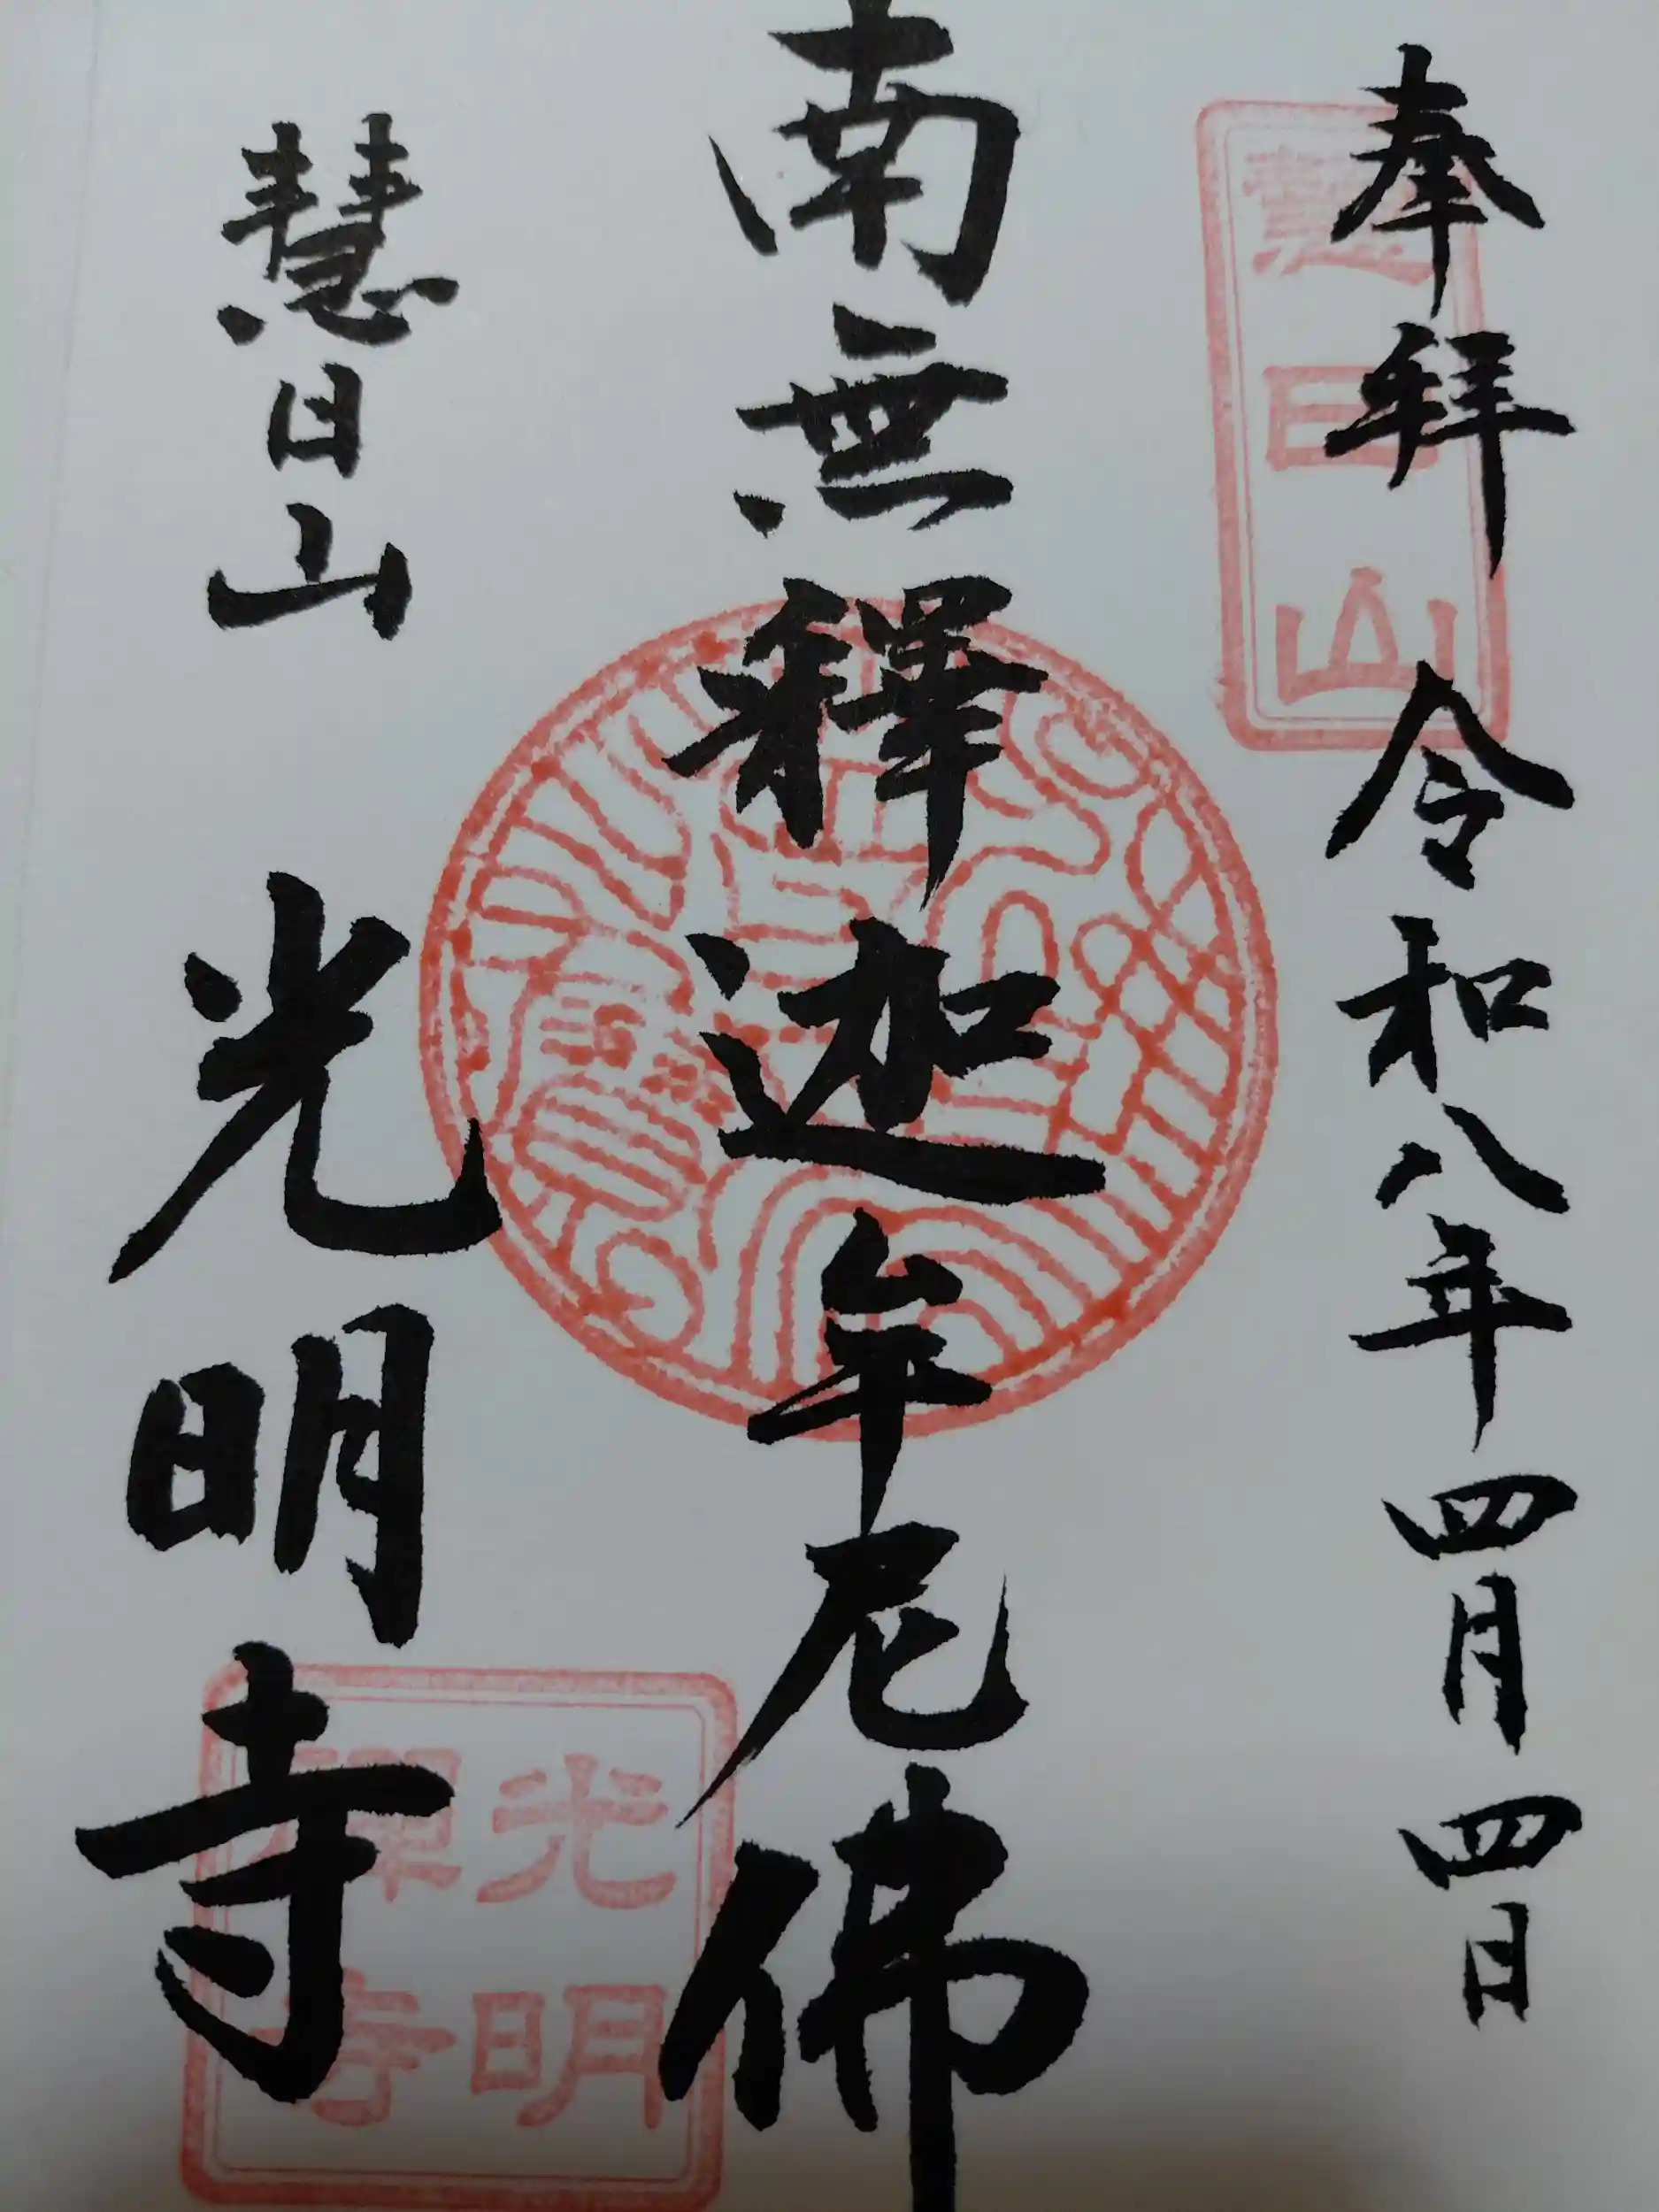 奉拜 令和八年四月四日
慧日山
南無釋迦牟尼佛
慧日山 光明寺
光明禅寺